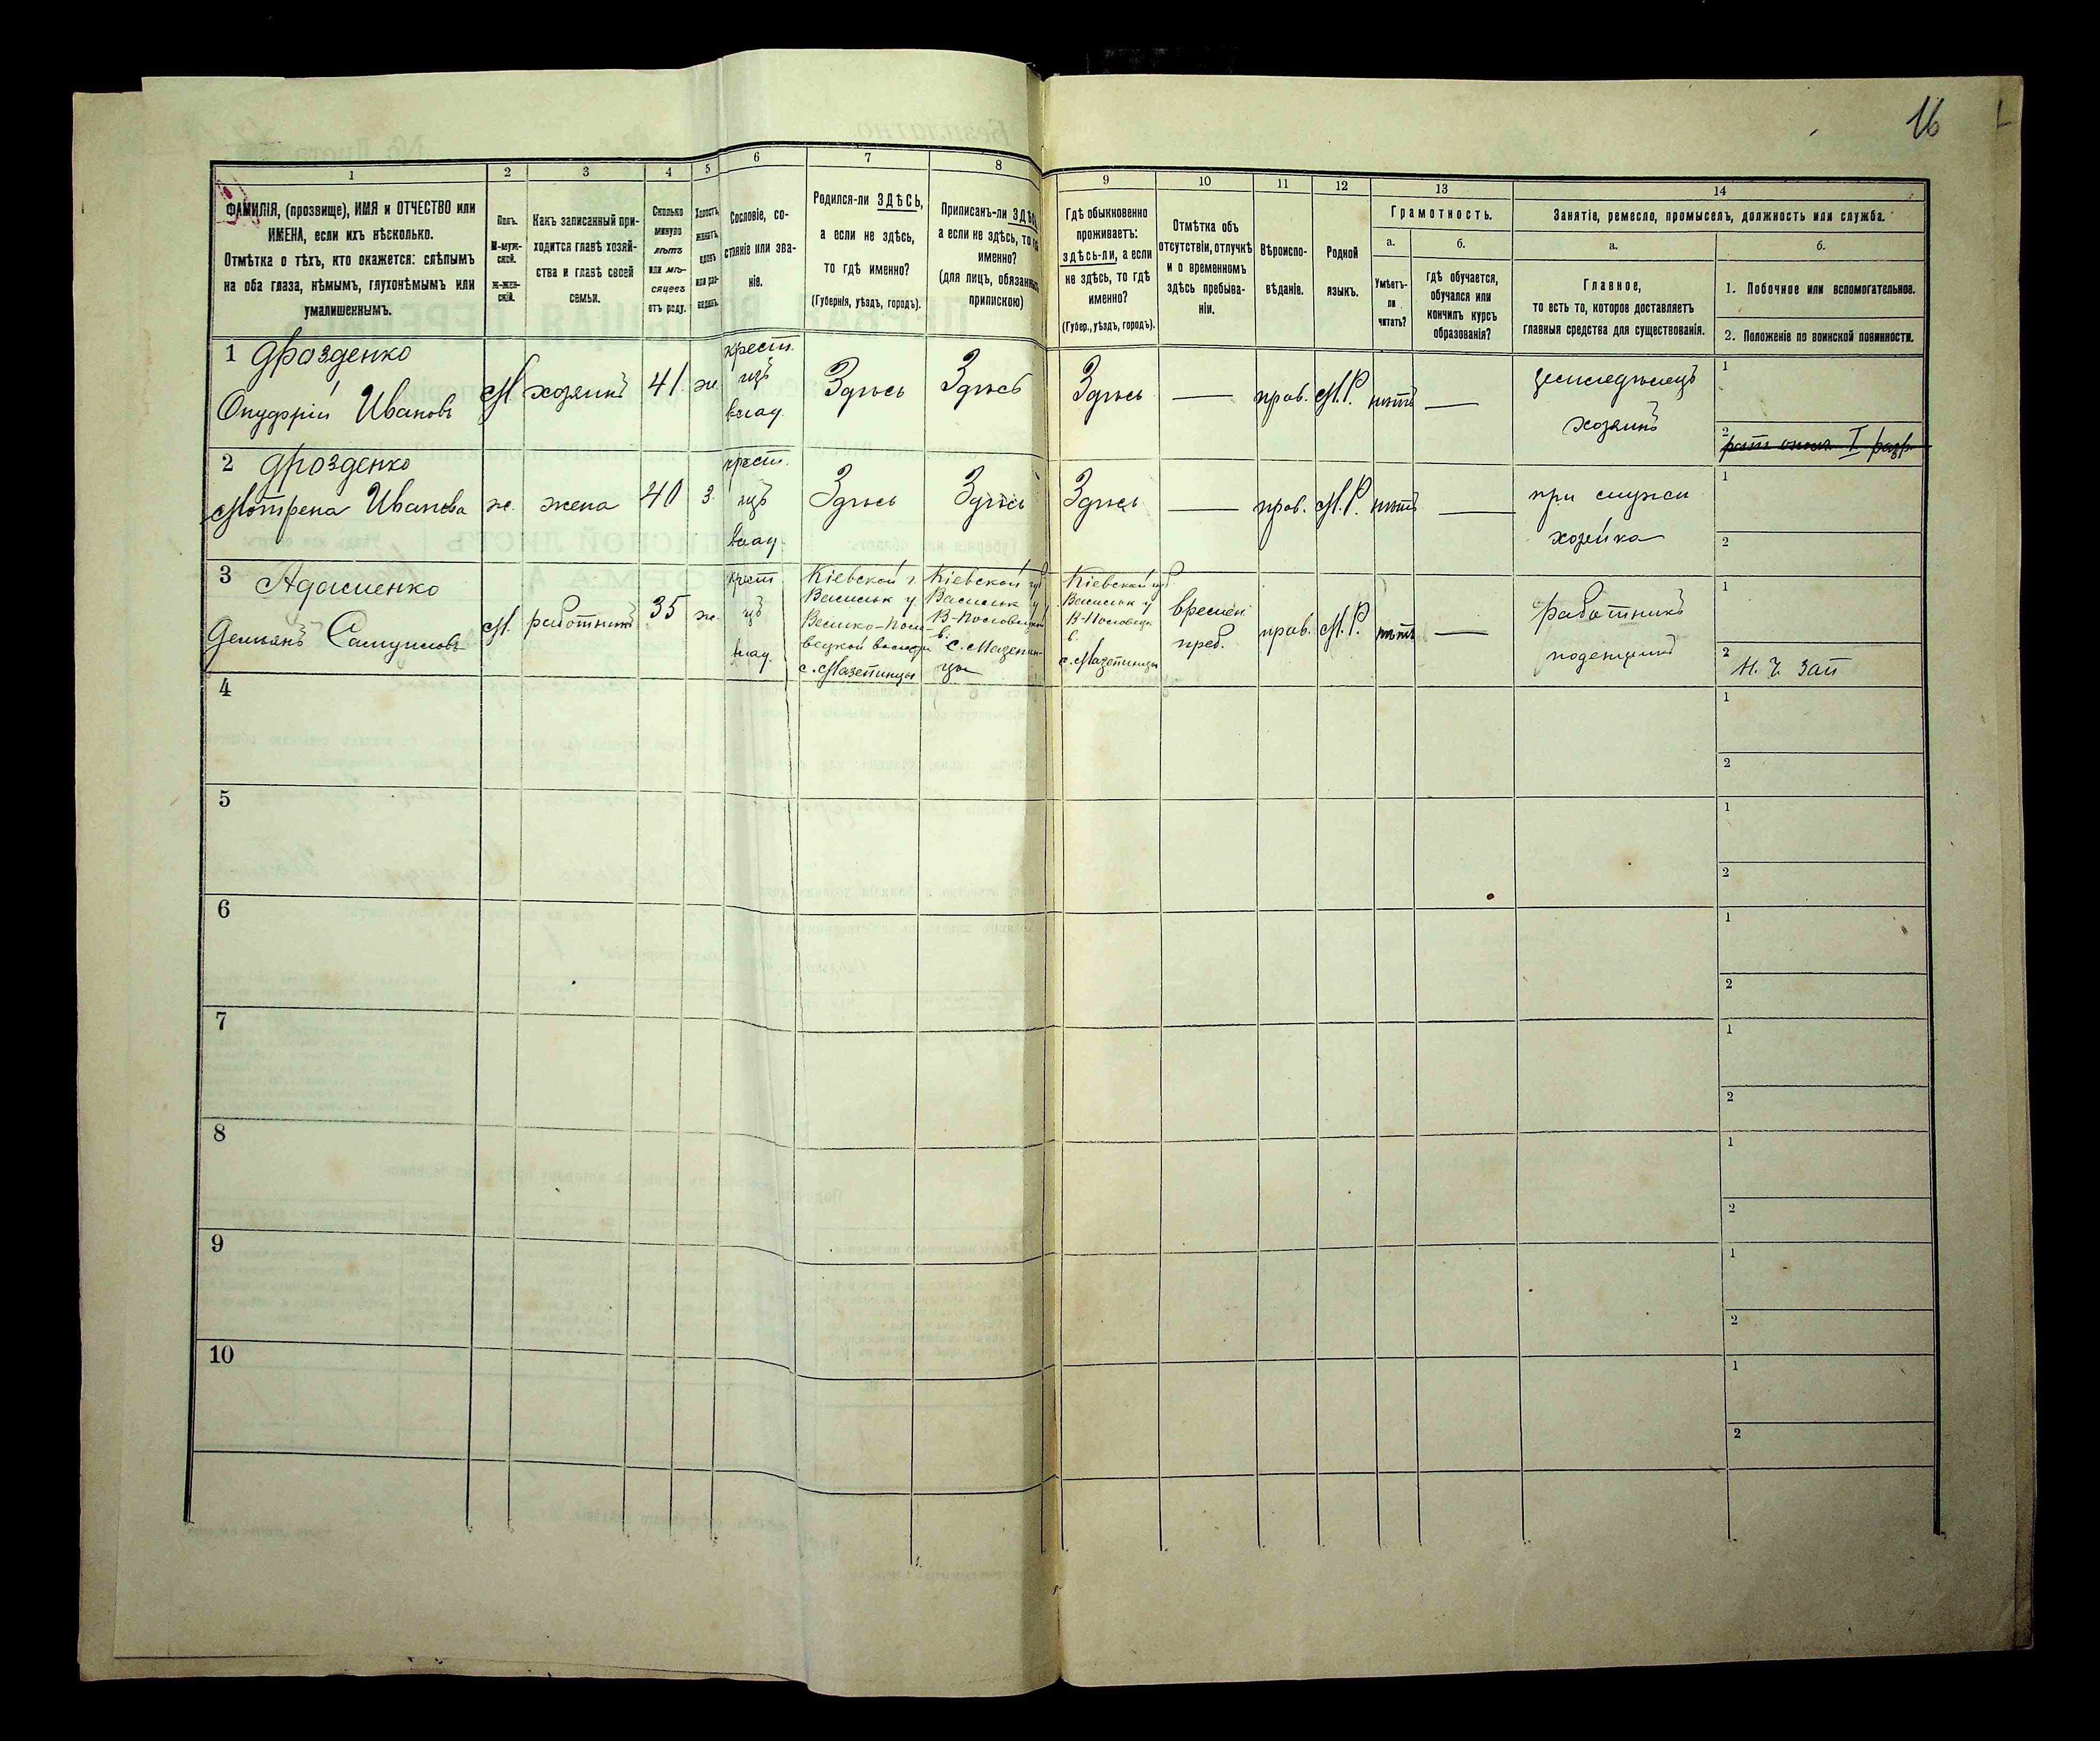 16
1
ФАМИЛІЯ, (прозвище), ИМЯ и ОТЧЕСТВО или
ИМЕНА, если ихъ нѣсколько.
Отмѣтка о тѣхъ, кто окажется: слѣпымъ
на оба глаза, нѣмымъ, глухонѣмымъ или
умалишеннымъ.
2
Полъ.
М-муж-
ской.
Ж-жен-
скій.
3
Какъ записанный при-
ходится главѣ хозяй-
ства и главѣ своей
семьи.
4
Сколько
минуло
лѣтъ
или мѣ-
сяцевъ
отъ роду.
5
Холостъ,
женатъ,
вдовъ
или раз-
веденъ.
6
Сословіе, со-
стояніе или зва-
ніе.
7
Родился-ли ЗДѢСЬ,
а если не здѣсь,
то гдѣ именно?
(Губернія, уѣздъ, городъ).
8
Приписанъ-ли ЗДѢСЬ,
а если не здѣсь, то гдѣ
именно?
(для лицъ, обязанныхъ
припискою)
9
Гдѣ обыкновенно
проживаетъ:
здѣсь-ли, а если
не здѣсь, то гдѣ
именно?
(Губер., уѣздъ, городъ).
10
Отмѣтка объ
отсутствіи, отлучкѣ
и о временномъ
здѣсь пребыва-
ніи.
11
Вѣроиспо-
вѣданіе.
12
Родной
языкъ.
13
Грамотность.
а.
Умѣетъ-
ли
читать?
б.
гдѣ обучается,
обучался или
кончилъ курсъ
образованія?
14
Занятіе, ремесло, промыселъ, должность или служба.
а.
Главное,
то есть то, которое доставляетъ
главныя средства для существованія.
б.
1. Побочное или вспомогательное.
2. Положеніе по воинской повинности.
1 Дрозденко
Онуфрій Ивановъ
М
хозяинъ
41.
ж.
крест.
изъ
влад.
Здѣсь
Здѣсь
Здѣсь
—
прав.
М.Р.
нѣтъ
—
земледѣлецъ
хозяинъ
1
2
рат. опол. I разр.
2 Дрозденко
Мотрена Иванова
ж.
жена
40
з.
крест.
изъ
влад.
Здѣсь
Здѣсь
Здѣсь
—
прав.
М.Р.
нѣтъ
—
при
хозяйка
1
2
3 Адаменко
Демьянъ Самуиловъ
М.
работникъ
35
ж.
крест
изъ
влад.
Кіевской г.
Васильк у
Велико-Поло-
вецкой волости
с. Мазепинцы
Кіевской губ
Васильк у
В-Половецкой
в. с. Мазепин-
цы
Кіевской губ.
Васильк у
В-Половецк
в.
с. Мазепинцы
времен
преб.
прав.
М.Р.
нѣтъ
—
работникъ
поденщикъ
1
2
Н. Ч зап
4
1
2
5
1
2
6
1
2
7
1
2
8
1
2
9
1
2
10
1
2